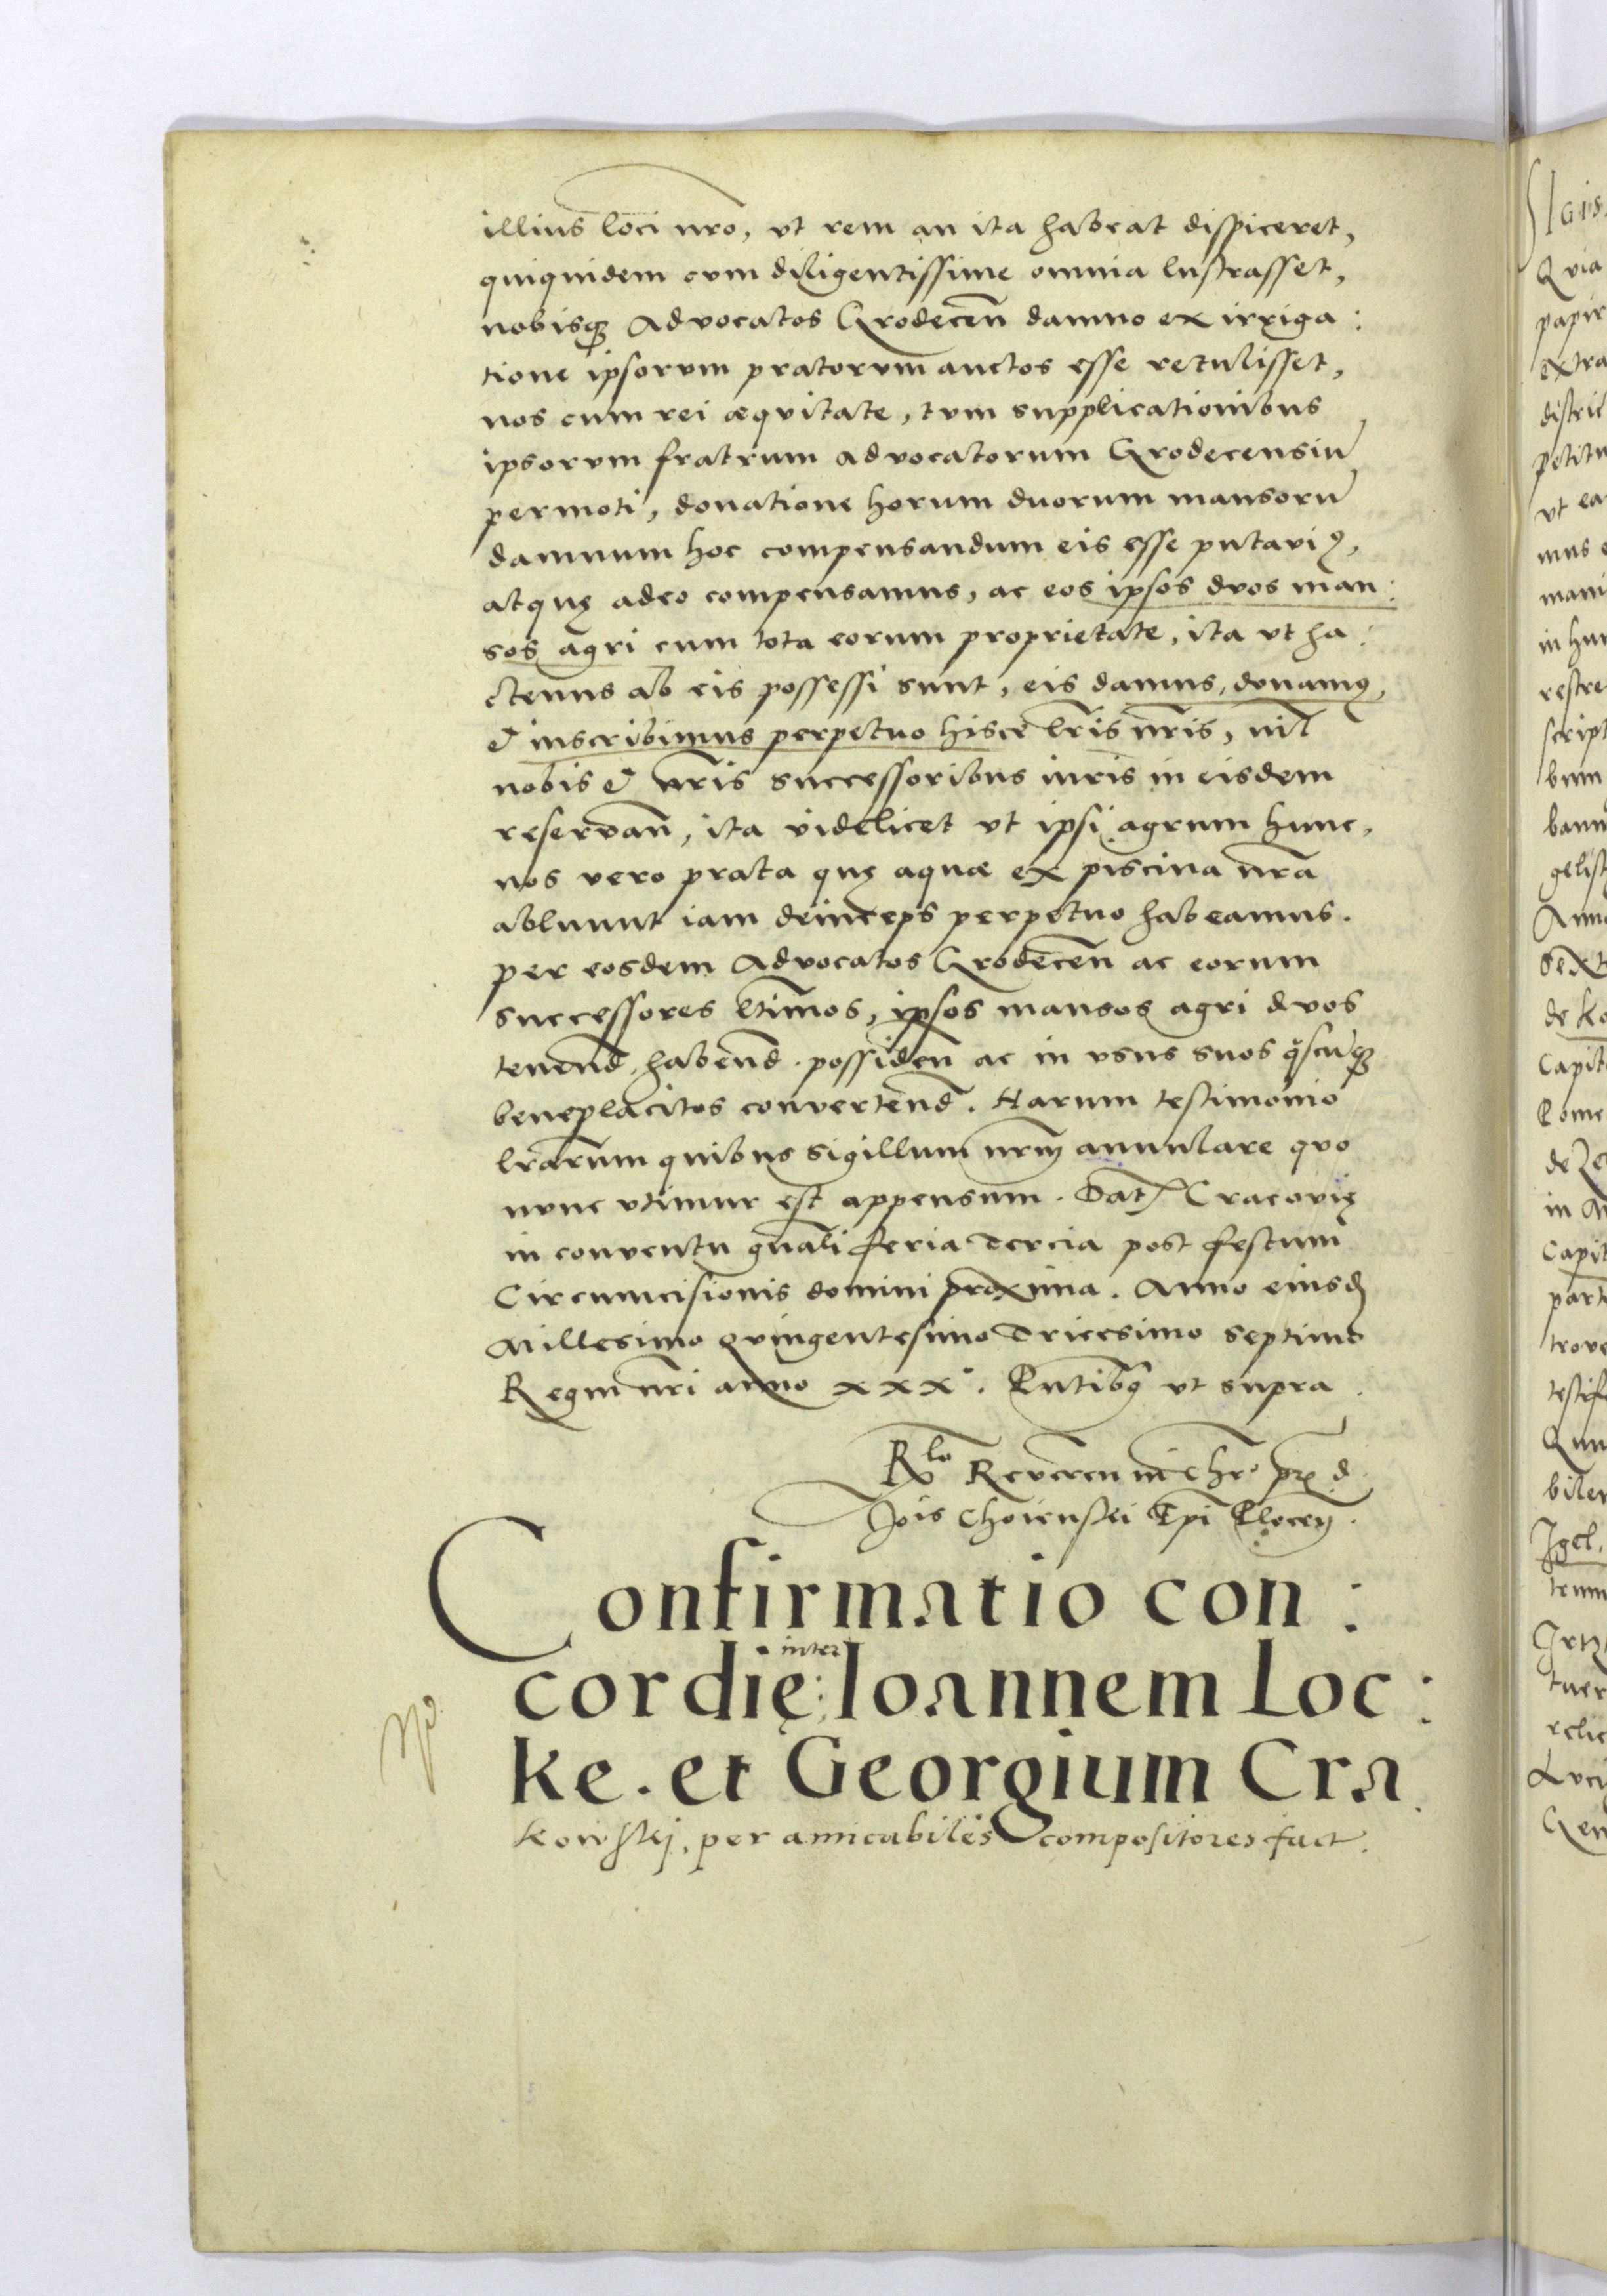 illius loci nro, vt rem an ita habeat dispiceret,
quiquidem cum diligentissime omnia lustrasset,
nobisq̃ Advocatos Grodecen̄ damno ex irriga:
tione ipsorum pratorum auctos esse retulisset,
nos cum rei æquitate, tum supplicationibus
ipsorum fratrum advocatorum Grodecensiū
permoti, donatione horum duorum mansorū
damnum hoc compensandum eis esse putaviꝯ,
atquę adeo compensamus, ac eos ipsos duos man:
sos agri cum tota eorum proprietate, ita vt ha:
ctenus ab eis possessi sunt, eis damus, donamꝯ,
et inscribimus perpetuo hisce lr̄is nr̄is, nil
nobis et nr̄is successoribus iuris in eisdem
reservan̄, ita videlicet vt ipsi agrum hunc,
nos vero prata quę aquæ ex piscina nr̄a
abluunt iam deinceps perpetuo habeamus.
per eosdem Advocatos Grodecen̄ ac eorum
successores ltimos, ipsos mansos agri duos
tenend̄. habend̄. possiden̄ ac in vsus suos q̊scūq̃
beneplacitos convertend̄. Harum testimonio
lrarum quibus sigillum nrm̄ annulare quo
nunc vtimur est appensum. Dat̄ Cracovię
in conventu gn̄ali feria tercia post festum
Circumcisionis domini proxima. Anno eiusd̄
Millesimo quingentesimo tricesimo septimo
Regni nr̄i anno xxx°. Pn̄tibꝯ vt supra.
Rlo Reveren in Chr̄o pr̄ d.
Jois Choienski Epi Plocen̄.
Confirmatio con:
cordię: inter Ioannem Loc:
ke. et Georgium Cra
kowskj, per amicabiles compositores fact.